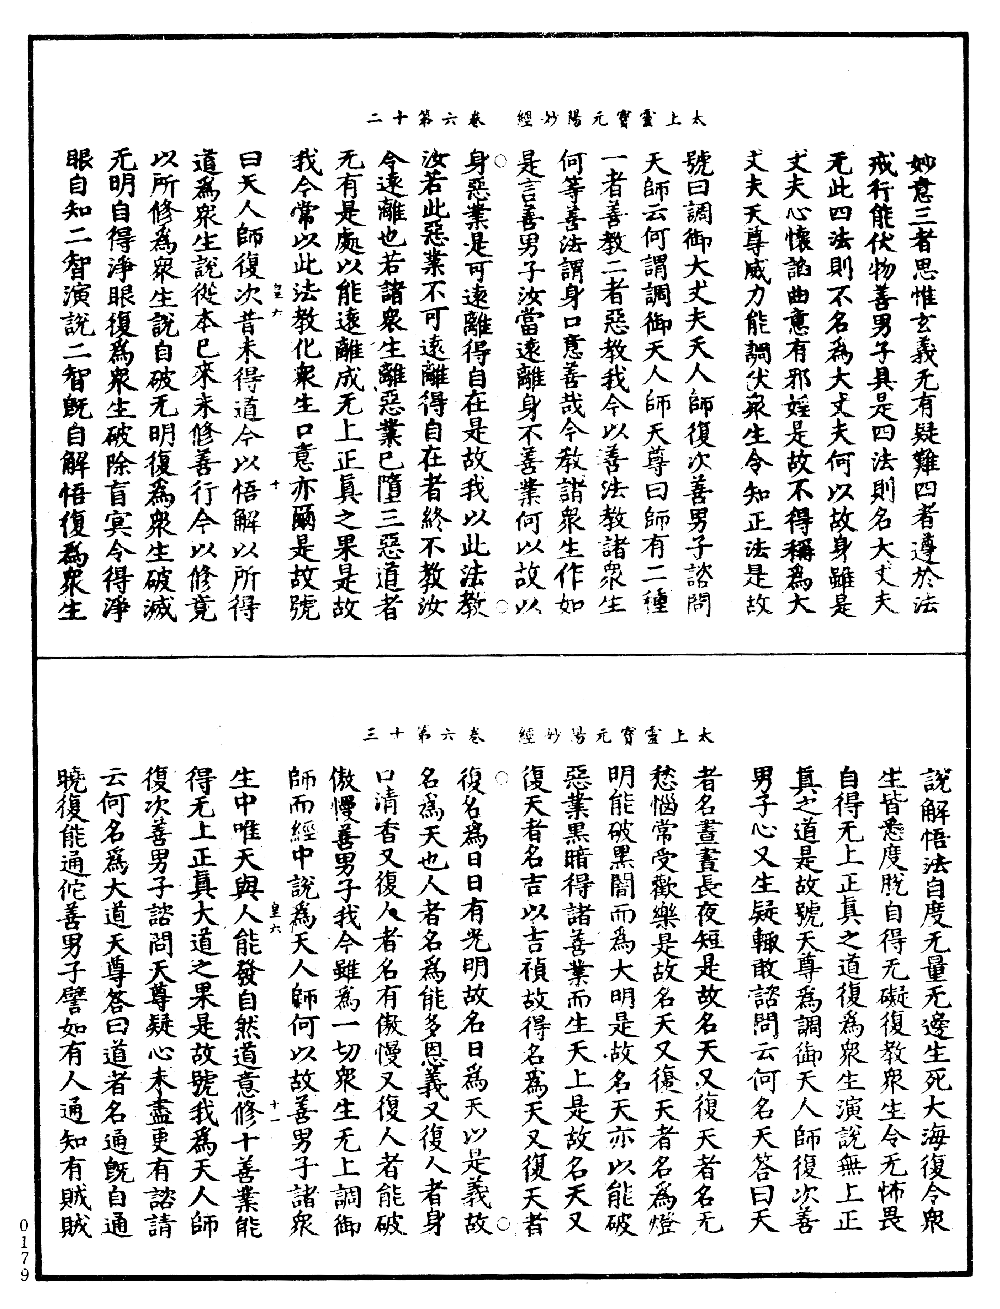 太上靈寶元陽妙經　卷六第十二
妙意三者思惟玄義无有疑難四者遵於法
戒行能伏物善男子具是四法則名大丈夫
无此四法則不名為大丈夫何以故身雖是
丈夫心懷諂曲意有邪婬是故不得稱為大
丈夫天尊威力能調伏衆生令知正法是故
號曰調御大丈夫天人師復次善男子諮問
天師云何謂調御天人師天尊曰師有二種
一者善教二者惡教我今以善法教諸衆生
何等善法謂身口意善哉今教諸衆生作如
是言善男子汝當遠離身不善業何以故以
身惡業是可遠離得自在是故我以此法教
汝若此惡業不可遠離得自在者終不教汝
令遠離也若諸衆生離惡業已墮三惡道者
无有是處以能遠離成无上正真之果是故
我今常以此法教化衆生口意亦爾是故號
皇六　十
曰天人師復次昔未得道今以悟解以所得
道為衆生說從本已來未修善行今以修竟
以所修為衆生說自破无明復為衆生破滅
无明自得淨眼復為衆生破除盲冥令得淨
眼自知二智演說二智既自解悟復為衆生
太上靈寶元陽妙經　卷六第十三
說解悟法自度无量无邊生死大海復令衆
生皆悉度脫自得无礙復教衆生令无怖畏
自得无上正真之道復為衆生演說無上正
真之道是故號天尊為調御天人師復次善
男子心又生疑輒敢諮問云何名天答曰天
者名晝晝長夜短是故名天又復天者名无
愁惱常受歡樂是故名天又復天者名為燈
明能破黑闇而為大明是故名天亦以能破
惡業黑暗得諸善業而生天上是故名天又
復天者名吉以吉禎故得名為天又復天者
復名為日日有光明故名日為天以是義故
名為天也人者名為能多恩義又復人者身
口清香又復人者名有傲慢又復人者能破
傲慢善男子我今雖為一切衆生无上調御
師而經中說為天人師何以故善男子諸衆
皇六　十一
生中唯天與人能發自然道意修十善業能
得无上正真大道之果是故號我為天人師
復次善男子諮問天尊疑心未盡更有諮請
云何名為大道天尊答曰道者名通既自通
曉復能通佗善男子譬如有人通知有賊賊
0179